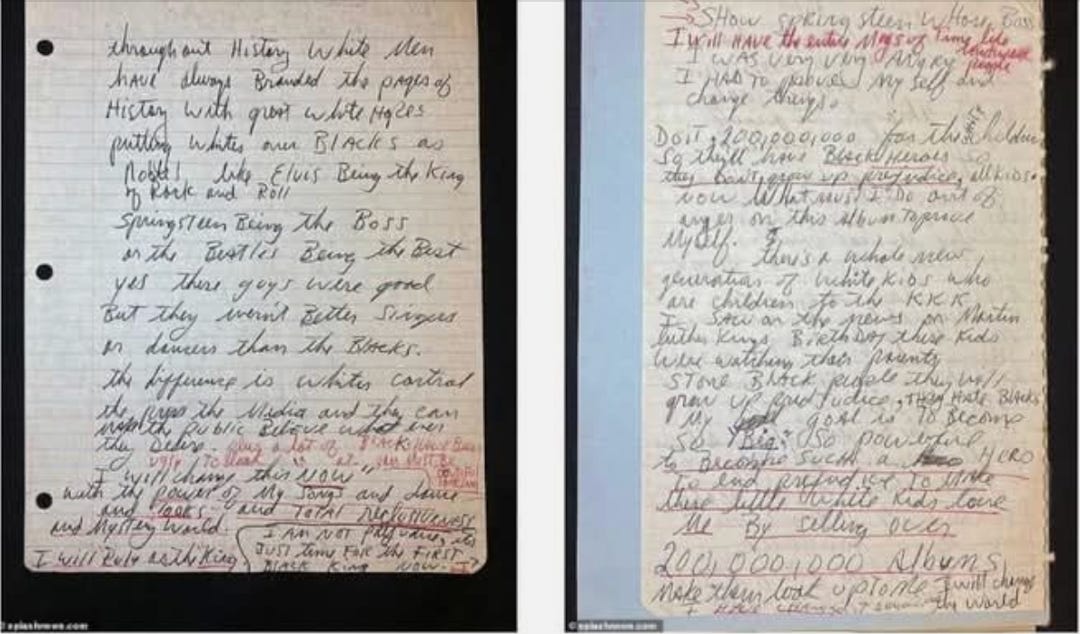 throughout History white Men
have always Branded the pages of
History with great white Heroes
putting whites over BLACKS as
like Elvis Being the King
of Rock and Roll
Springsteen Being the Boss
or the Beatles Being the Best
yes these guys were good
But they wernt Better Singers
or dancers than the BLACKS.
the difference is whites control
the press the Media and they can
the Public Believe what ever
they Desire. plus a lot of BLACKS
ugly To
I will change this NOW"
with the power of My Songs and dance
and Looks and TOTAL reclusiveness
and Mystery World.
I will Rule as the King
I AM NOT
JUST time FOR the FIRST
BLACK King NOW.
SHOW springsteen Whose Boss
I will HAVE the entire of Time
I WAS very very Angry
I HAD TO My Self and
change things.
Do it, 200,000,000 for the children
So they'll have Black Heroes so
they Don't grow up prejudice, all KIDS.
now What must I Do out of
anger on this album to prove
Myself. there's a whole new
generation of White KIDS who
are children to the KKK
I SAW on the news on Martin
Luther Kings BIRTHDAY these Kids
Were watching their parents
STONE BLACK people they will
grow up prejudice, THEY HATE BLACKS
My goal is TO Become
So "Big" So powerful
to Become SUCH a HERO
To end prejudice, To Make
these little white Kids love
Me By selling over
200,000,000 Albums
Make them look up to Me I will change
the World
I
splashnews.com
© splashnews.com